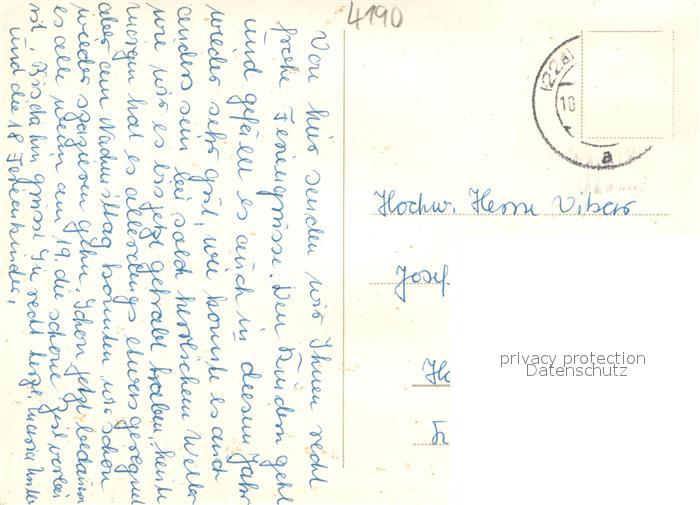 4190
Von hier senden wir Ihnen recht
frohe Feriengrüsse. Den Kindern geht
und gefällt es auch in diesem Jahr
wieder sehr gut, wie könnte es auch
anders sein bei solch herrlichem Wetter
wie wir es bis jetzt gehabt haben, heute
morgen hat es allerdings etwas geregnet
aber am Nachmittag konnten wir schon
wieder spazieren gehn. Schon jetzt bedauern
es alle wenn am 19. die schöne Zeit vorbei
ist. Bis dahin grüsst Sie recht herzl. Maria
und die 18 Ferienkinder.
(22a)
10
a
Hochw. Herrn Vikar
Josef
privacy protection
Datenschutz